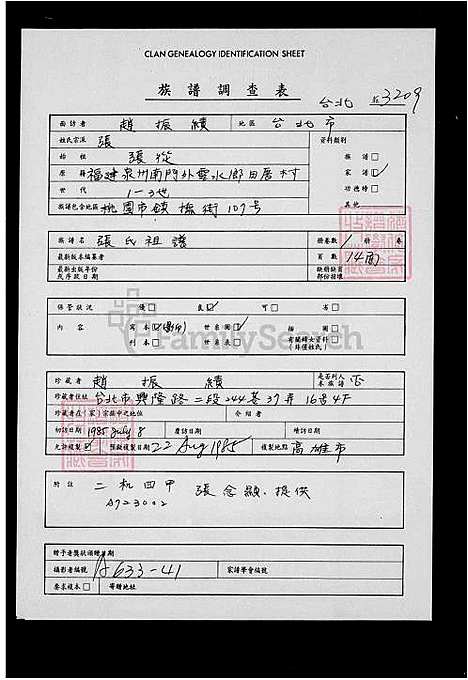 CLAN GENEALOGY IDENTIFICATION SHEET
族譜調查表
台北 3209
面訪者 趙振績 地區 台北市
姓氏宗派 張 資料類別
始祖 張從 族譜□
原籍 福建泉州南門外雲水鄉田厝村 家譜☑
世代 1-3世 功德榜□
族譜包含地區 桃園市鎮撫街107号 其他
族譜名 張氏祖譜 冊卷數 1 冊 卷
最新版本編纂者 頁數 14面
最新出版年份或序跋日期 缺頁缺首部份說明
保管狀況 優□ 良☑ 可□ 劣□
內容 寫本☑ 世系圖☑ 插圖□
刊本□ 世系表□ 有關婦女資料□
FamilySearch
珍藏者 趙振績 是否列入本族譜 否
珍藏者住址 台北市興隆路二段244巷37弄16号4F
珍藏者在(家)宗族中之地位 介紹者
初訪日期 1985 July 8 日期 續訪日期
允許複製☑ 預擬複製日期 22 Aug 1985 複製地點 高雄市
附註 二机四甲 張念顯提供
A723002
贈予者獎狀頒贈日期
攝影者編號 A633-41 家譜學會編號
要求複本□ 寄贈地址